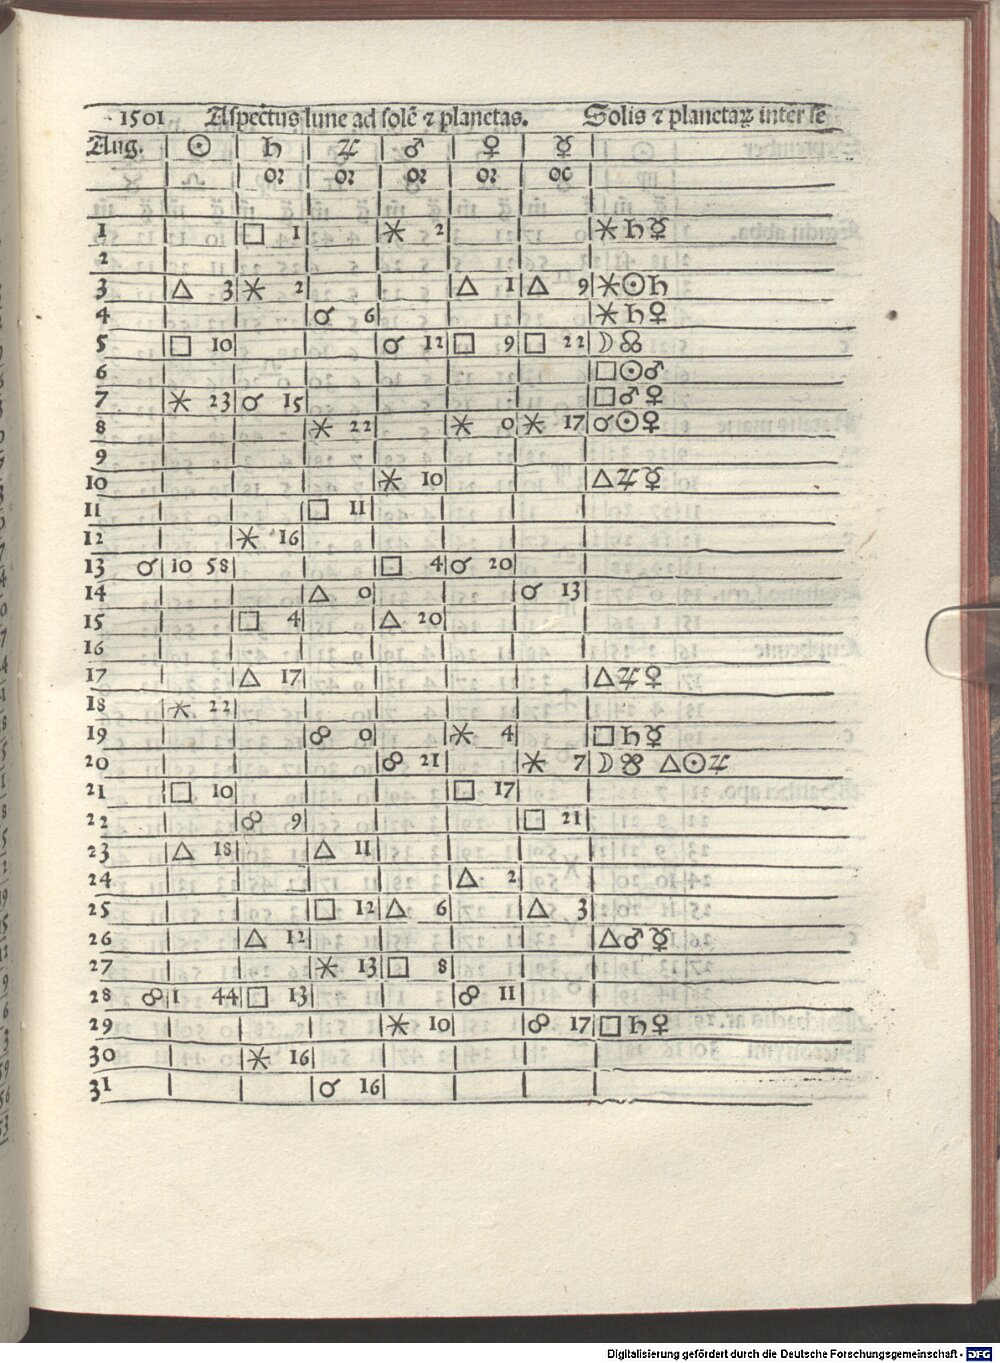 1501 Aspectus lune ad solē ⁊ planetas. Solis ⁊ planetaꝝ inter sē
Aug. ☉ ♄ ♃ ♂ ♀ ☿
oꝛ oꝛ oꝛ oꝛ oc
1 □ 1 ⚹ 2 ⚹ ♄ ☿
2
3 △ 3 ⚹ 2 △ 1 △ 9 ⚹ ☉ ♄
4 ☌ 6 ⚹ ♄ ♀
5 □ 10 ☌ 12 □ 9 □ 22 ☽ ☊
6 □ ☉ ♂
7 ⚹ 23 ☌ 15 □ ♂ ♀
8 ⚹ 22 ⚹ 0 ⚹ 17 ☌ ☉ ♀
9
10 ⚹ 10 △ ♃ ☿
11 □ 11
12 ⚹ 16
13 ☌ 10 58 □ 4 ☌ 20
14 △ 0 ☌ 13
15 □ 4 △ 20
16
17 △ 17 △ ♃ ♀
18 ⚹ 22
19 ☍ 0 ⚹ 4 □ ♄ ☿
20 ☍ 21 ⚹ 7 ☽ ☋ △ ☉ ♃
21 □ 10 □ 17
22 ☍ 9 □ 21
23 △ 18 △ 11
24 △ 2
25 □ 12 △ 6 △ 3
26 △ 12 △ ♂ ☿
27 ⚹ 13 □ 8
28 ☍ 1 44 □ 13 ☍ 11
29 ⚹ 10 ☍ 17 □ ♄ ♀
30 ⚹ 16
31 ☌ 16
Digitalisierung gefördert durch die Deutsche Forschungsgemeinschaft - DFG